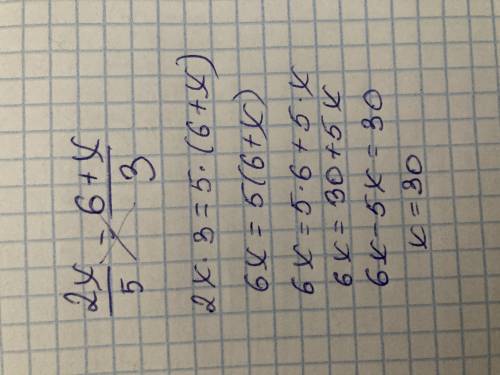 2x/5 = 6+x/3
2x·3=5·(6+x)
6x=5(6+x)
6x=5·6+5·x
6x=30+5x
6x-5x=30
x=30